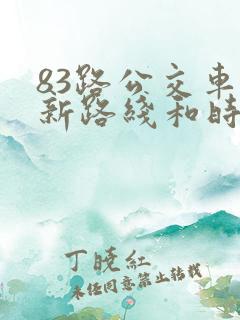 83路公交车
新路线和时
丁晓红
未经同意禁止转载